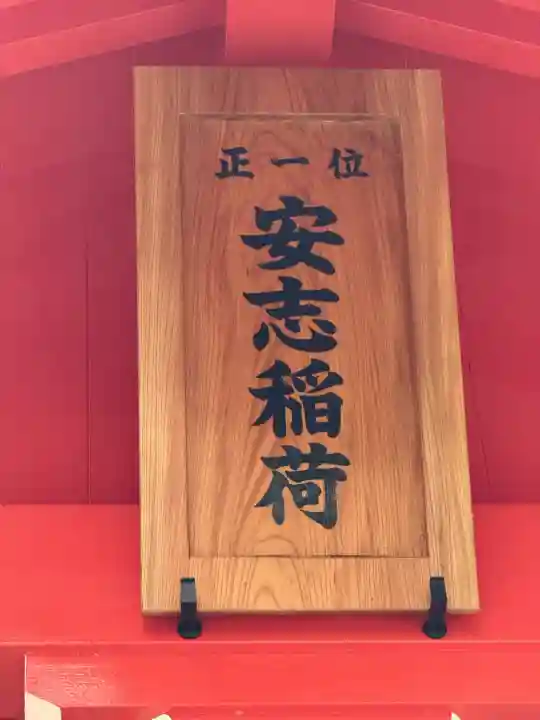 正一位
安志稲荷